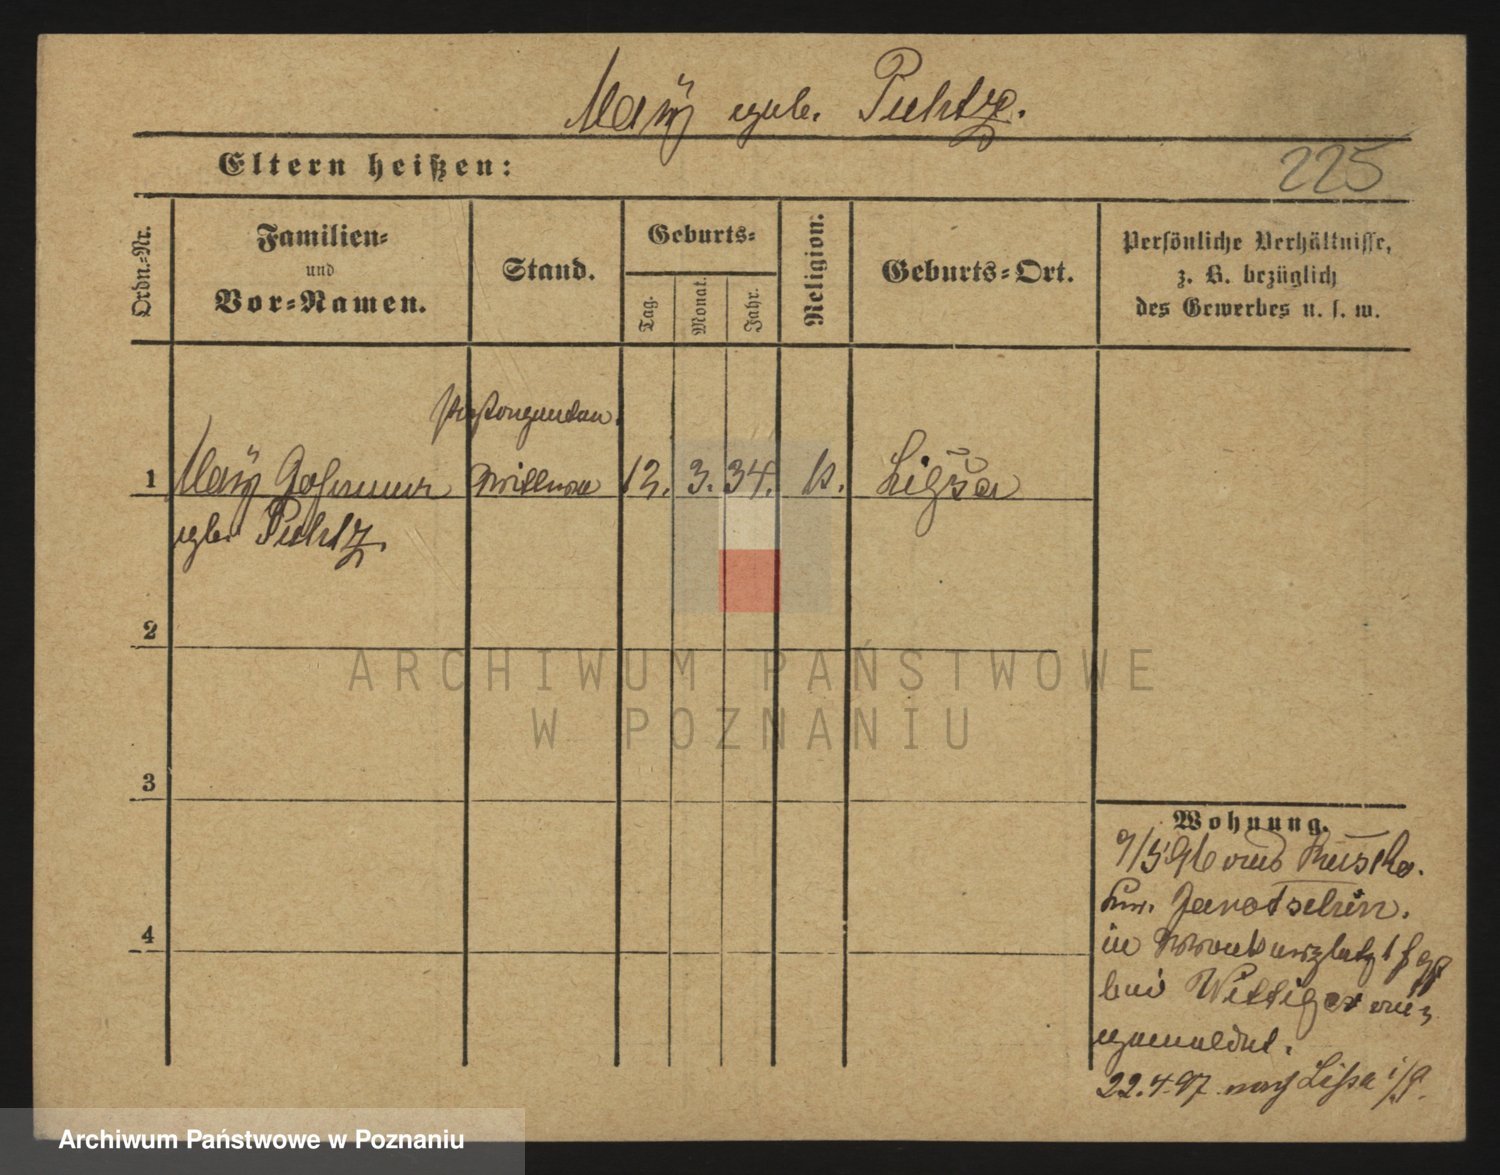 May geb. Puhtz.
Eltern heißen:
225
Ordn.-Nr.
Familien-
und
Vor-Namen.
Stand.
Geburts-
Tag.
Monat.
Jahr.
Religion.
Geburts-Ort.
Persönliche Verhältnisse,
z. B. bezüglich
des Gewerbes u. s. w.
1
May Johanna
geb. Puhtz.
Wittwe
12. 3. 34.
k.
2
3
4
Wohnung.
9/5 96 aus
Kr. Jarotschin.
in
bei Wittig
gemeldet.
22.4.97 nach Lissa i/P.
ARCHIWUM PAŃSTWOWE
W POZNANIU
Archiwum Państwowe w Poznaniu